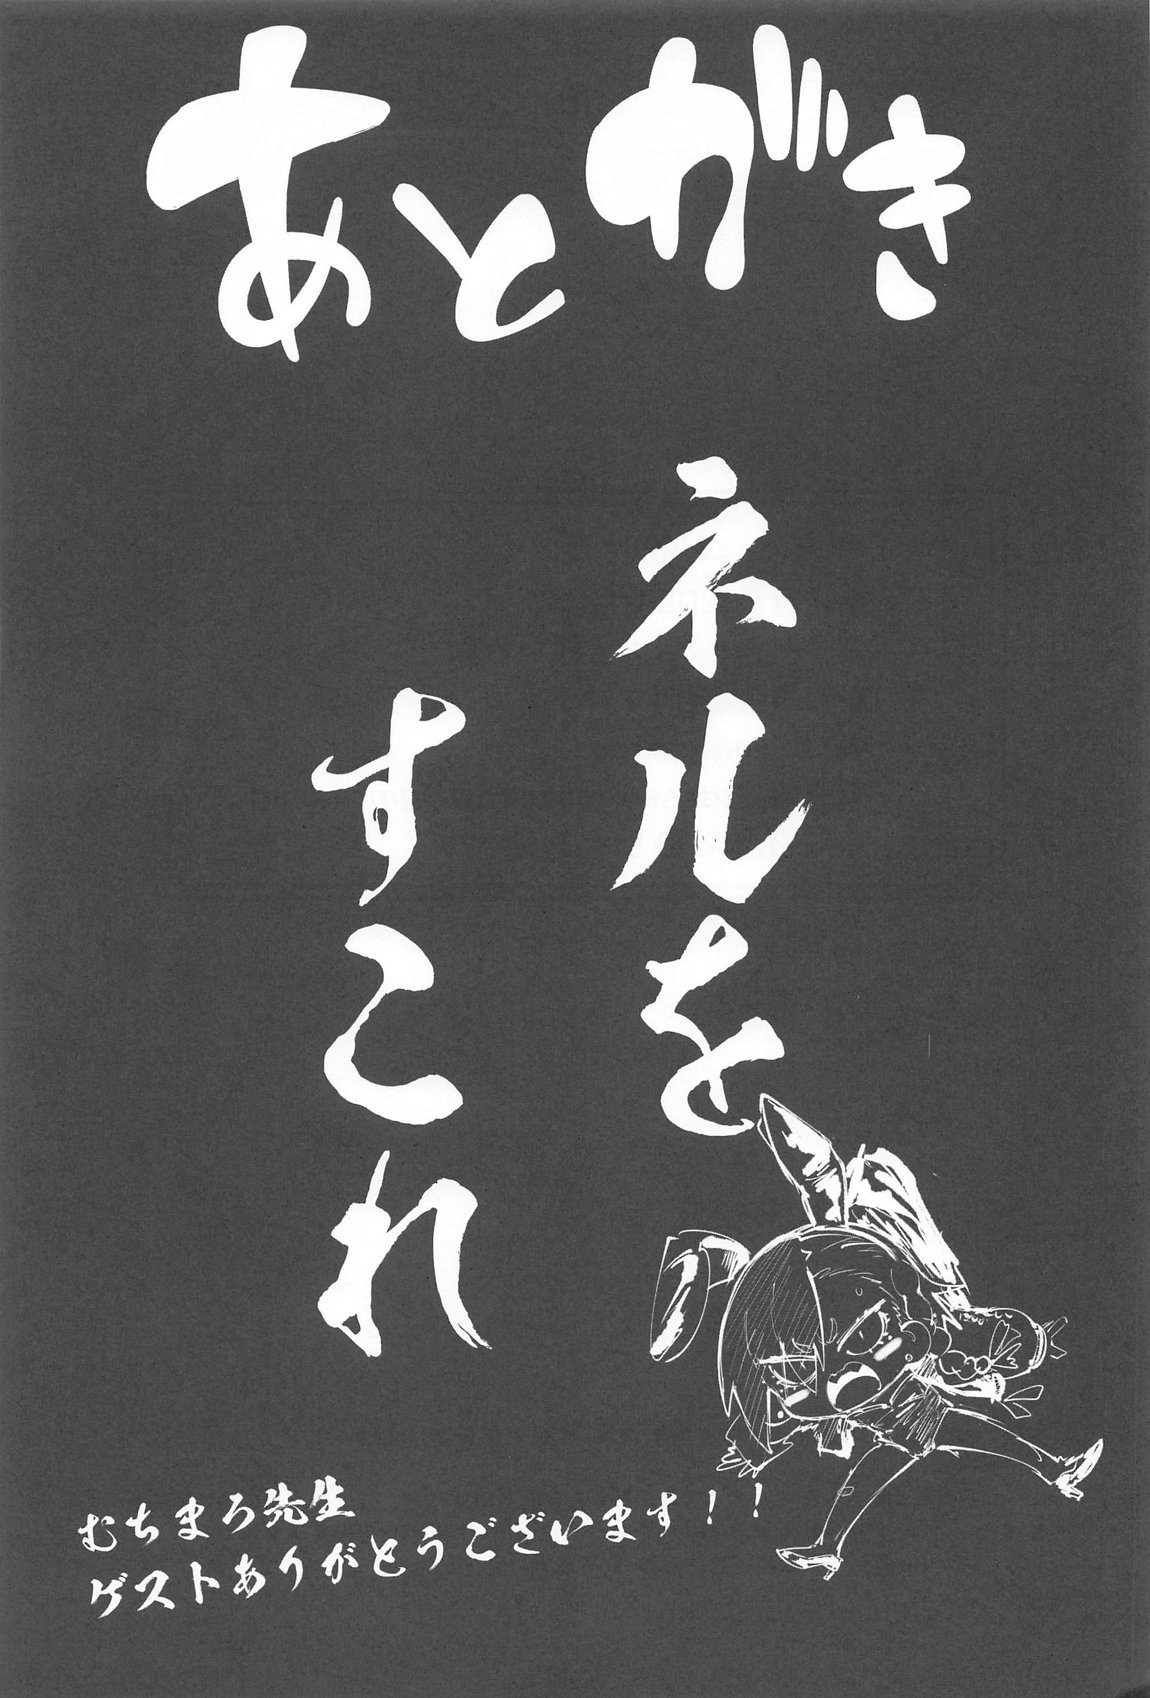 あとがき
ネルを
すこれ
むちまろ先生
ゲストありがとうございます！！